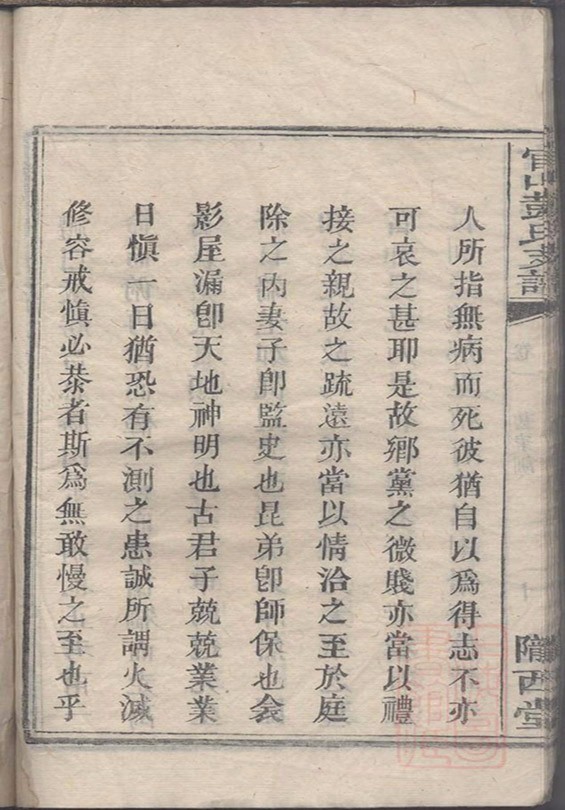 官山彭氏支譜
隴西堂
人所指無病而死彼猶自以爲得志不亦
可哀之甚耶是故鄉黨之微賤亦當以禮
接之親故之疏遠亦當以情洽之至於庭
除之內妻子卽監史也昆弟卽師保也衾
影屋漏卽天地神明也古君子兢兢業業
日愼一日猶恐有不測之患誠所謂火滅
修容戒愼必恭者斯爲無敢慢之至也乎